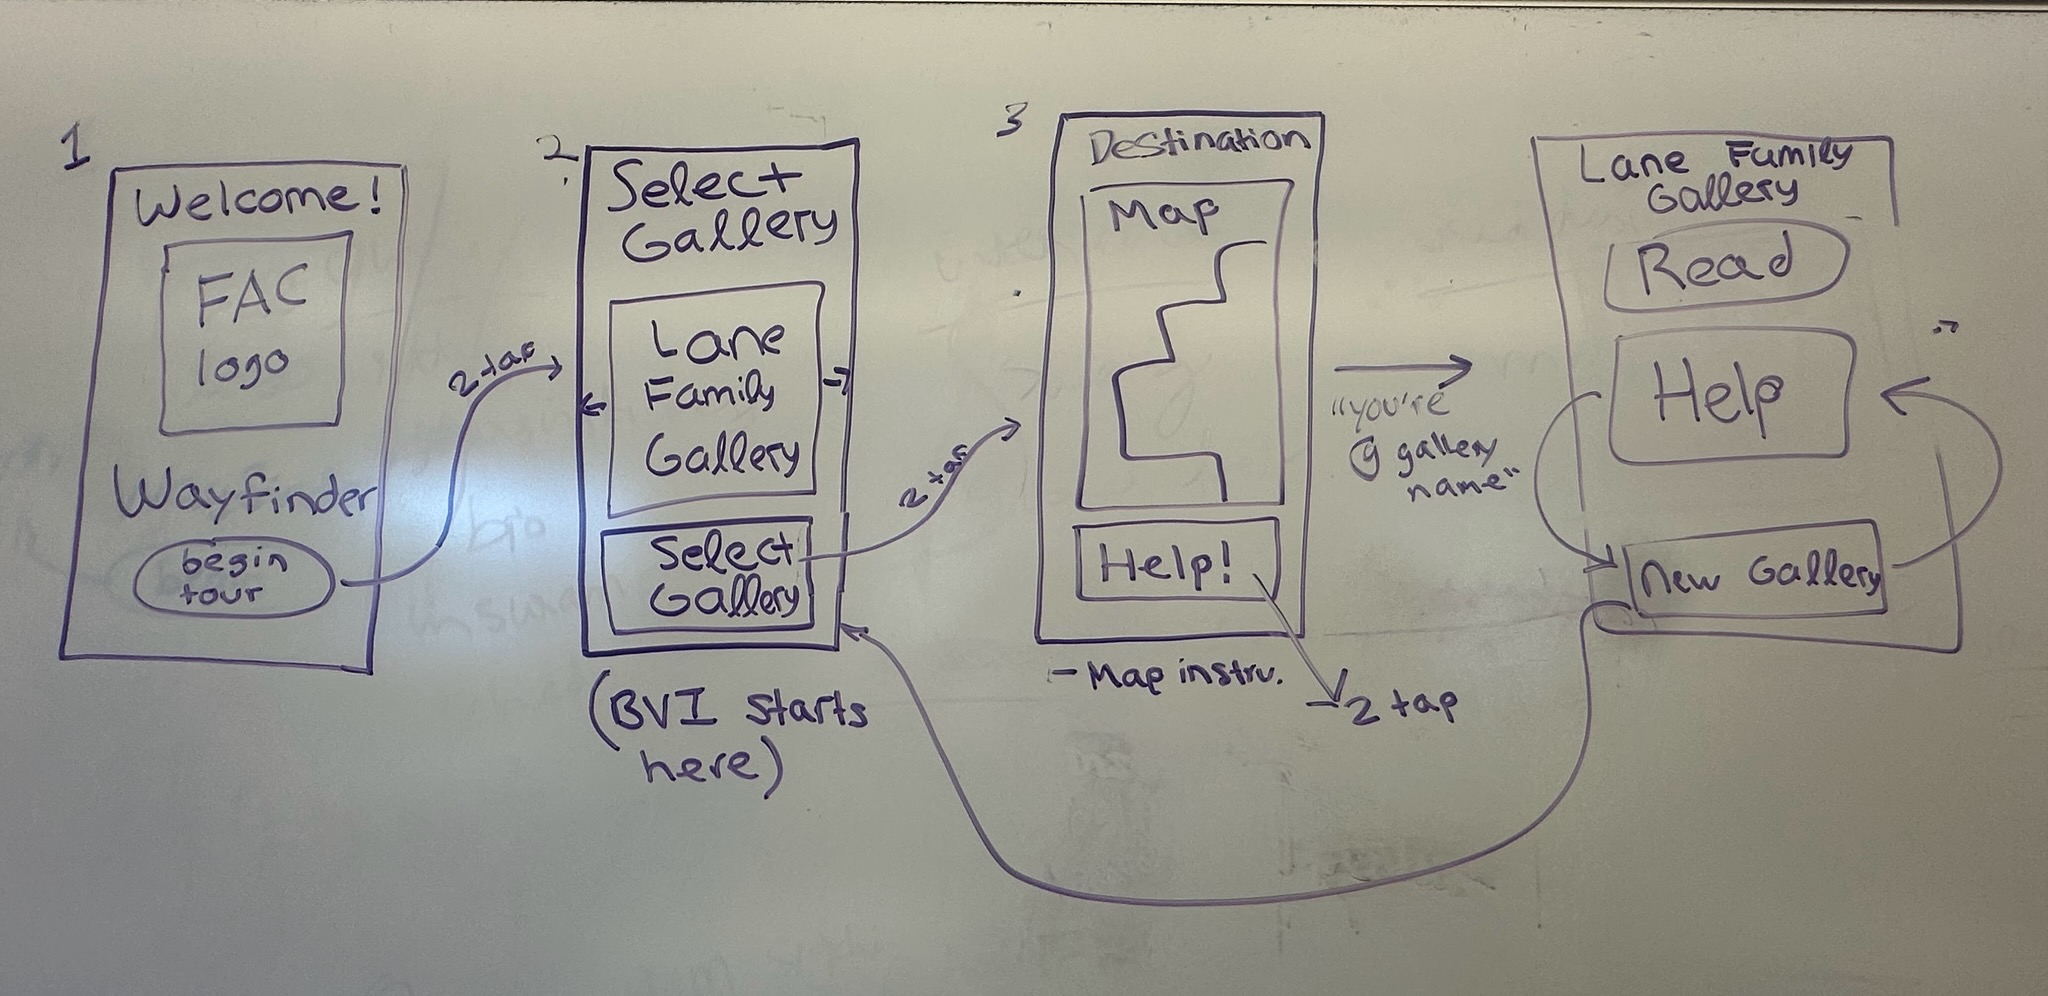 1
Welcome!
FAC
logo
Wayfinder
begin
tour
2 tap
2
Select
Gallery
Lane
Family
Gallery
Select
Gallery
(BVI starts
here)
2 tap
3
Destination
Map
Help!
- Map instru.
2 tap
"you're
@ gallery
name"
Lane Family
Gallery
Read
Help
New Gallery